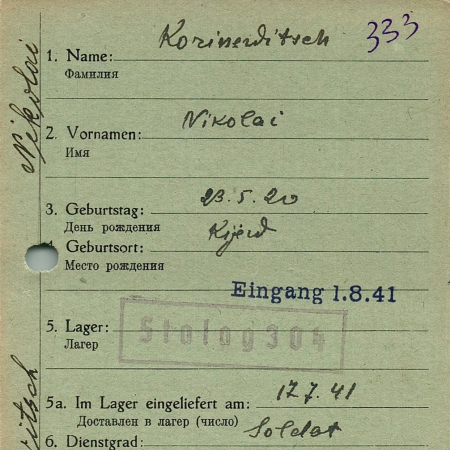 333
1. Name:
Фамилия
Nikolai
2. Vornamen: Nikolai
Имя
3. Geburtstag: 23.5.20
День рождения
Geburtsort:
Место рождения
Eingang 1.8.41
5. Lager: Stalag 304
Лагер
5a. Im Lager eingeliefert am: 17 7. 41
Доставлен в лагер (число)
6. Dienstgrad: Soldat